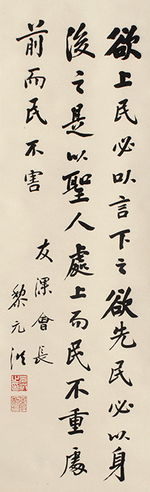 欲上民必以言下之欲先民必以身
後之是以聖人處上而民不重處
前而民不害
友漁會長
黎元洪